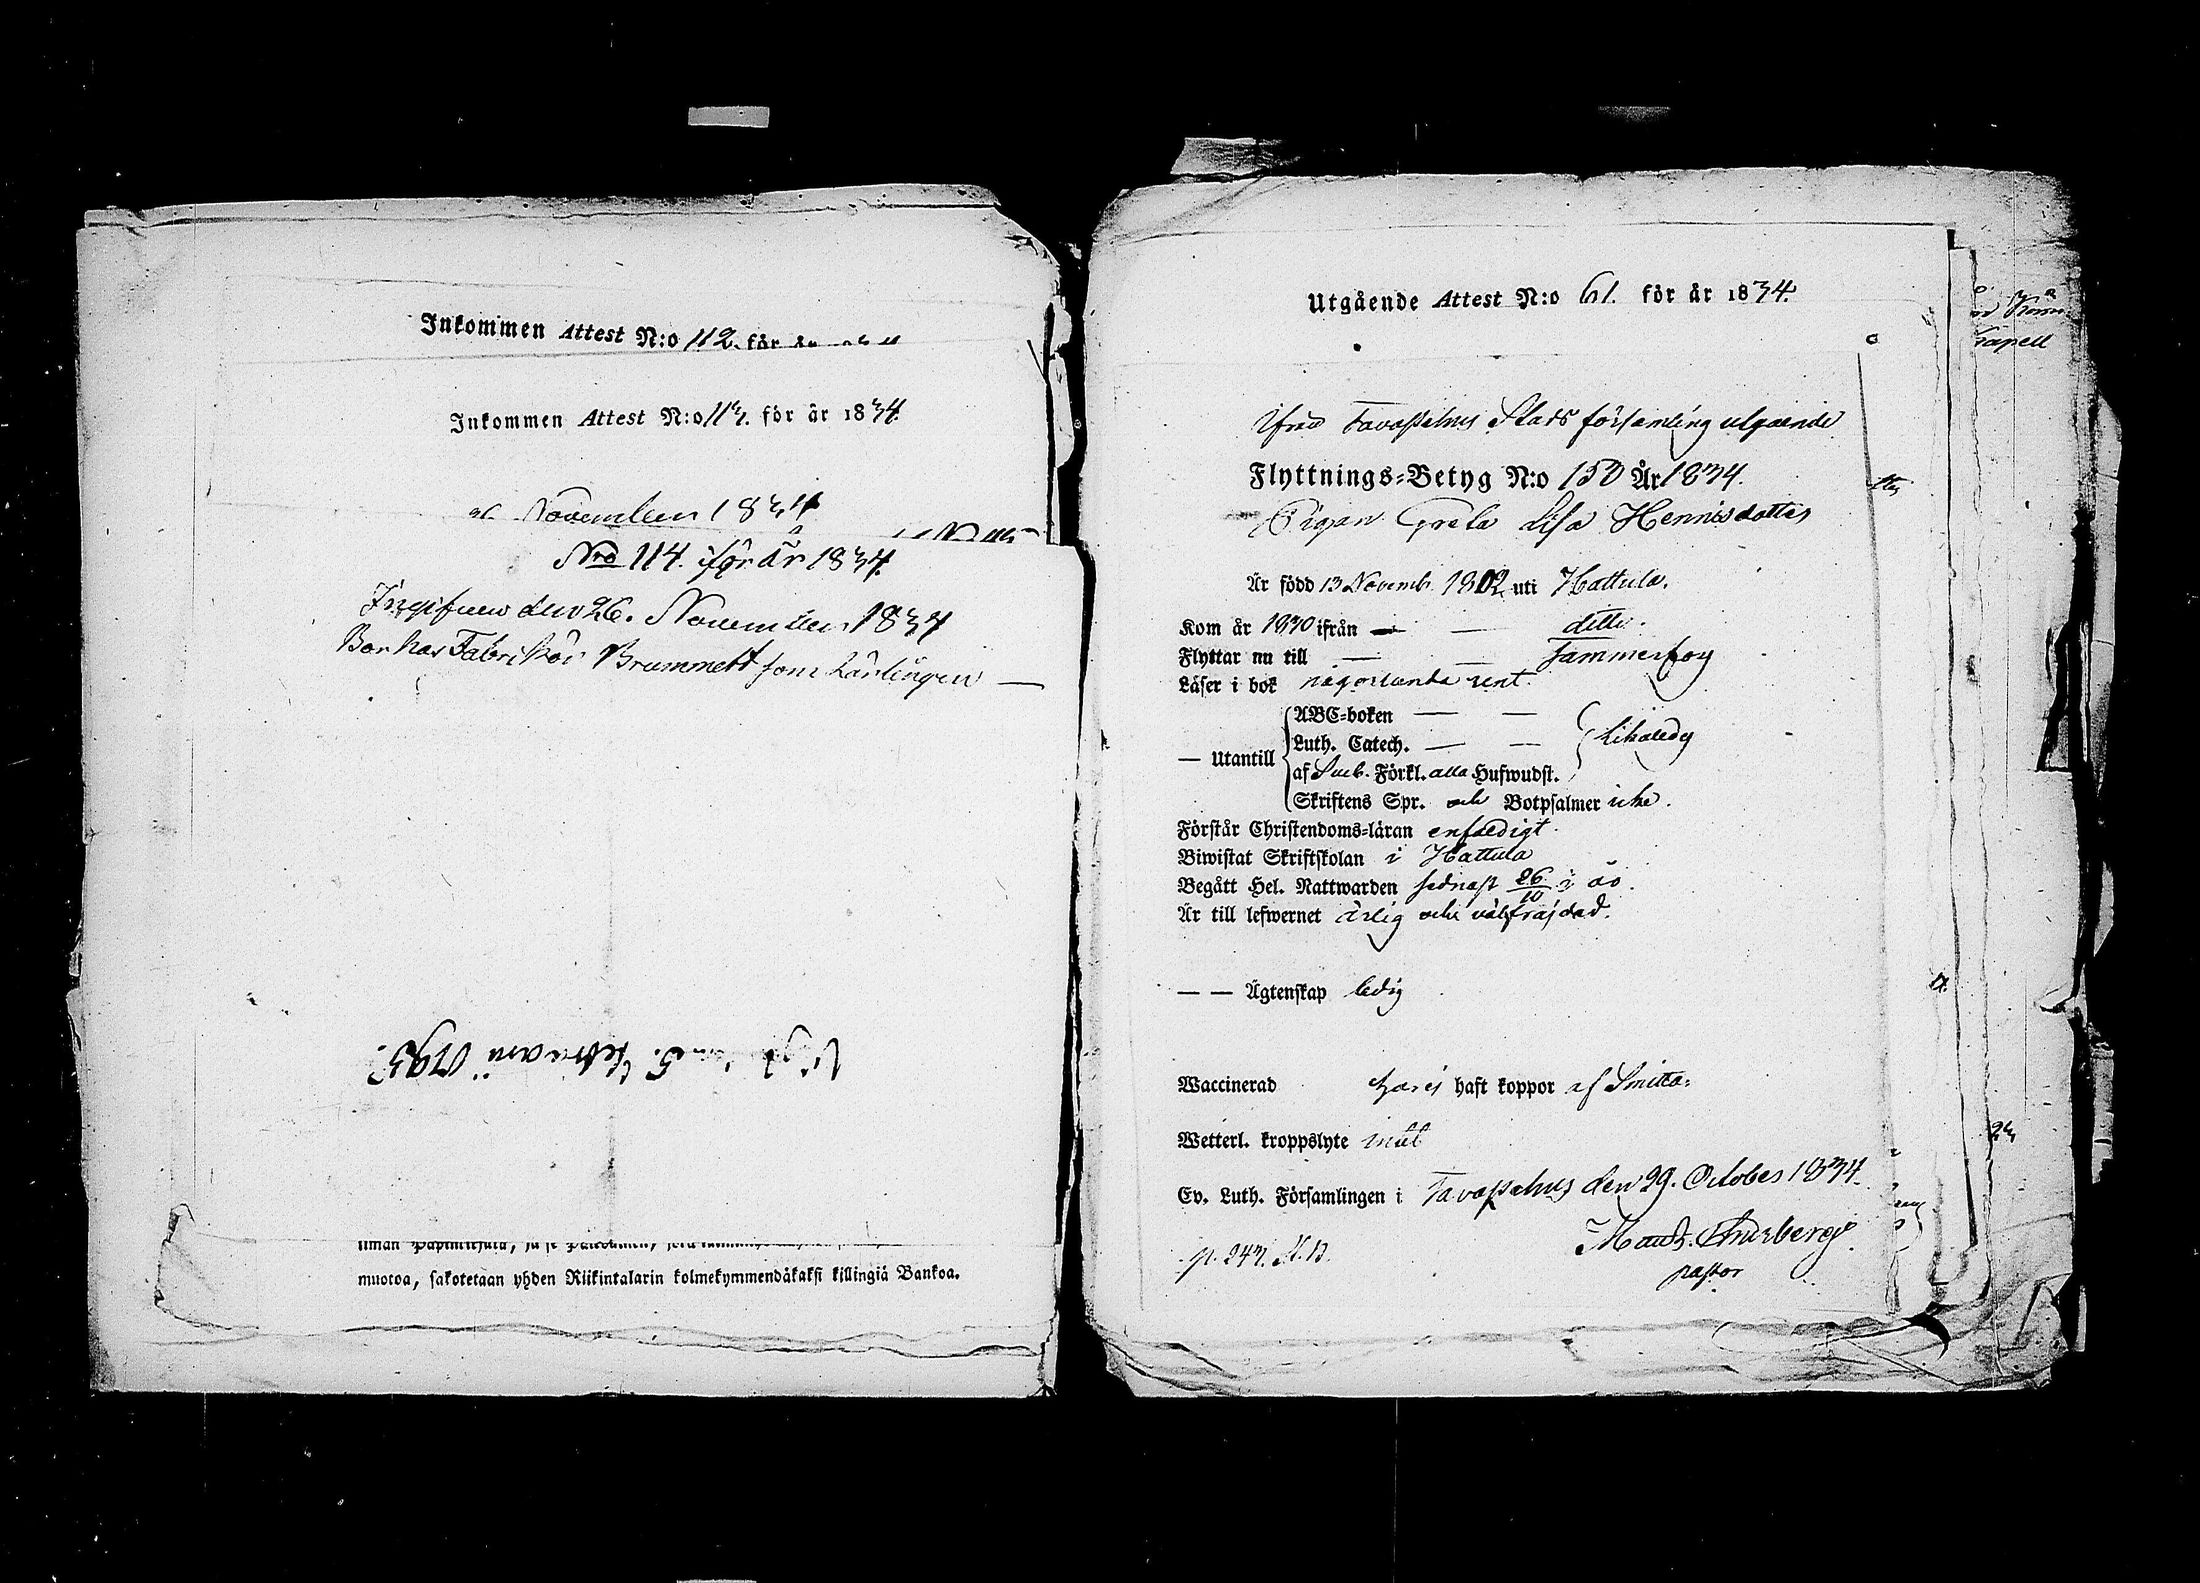 Inkommen Attest N:o 112. för år
Inkommen Attest N:o 113. för år 1834.
November 1834
Nro 114. för år 1834.
Ingifven den 26. November 1834
Bor hos Fabrikör Brummert som Lärlingen —
5. Februarii 1795.
muotoa, sakotetaan yhden Riikintalarin kolmekymmendäkaksi killingiä Bankoa.
Utgående Attest N:o 61. för år 1834.
Ifrån Tavastehus Stads församling utgående
Flyttnings-Betyg N:o 150 År 1834.
Pigan Greta Lisa Hennisdotter
Är född 13 Novemb. 1802 uti Hattula.
Kom år 1830 ifrån — — ditto.
Flyttar nu till — — Tammerfors
Läser i bok någorlunda rent.
— Utantill
ABC-boken — —
Luth. Catech. — — likaledes
af Sueb. Förkl. alla Hufwudst.
Skriftens Spr. och Botpsalmer icke.
Förstår Christendoms-läran enfaldigt.
Biwistat Skriftskolan i Hattula
Begått Hel. Nattwarden sednast 26/10 i år.
Är till lefwernet ärlig och välfräjdad.
— — Ägtenskap ledig
Waccinerad haft koppor af Smitta.
Wetterl. kroppslyte intet
Ev. Luth. Församlingen i Tavastehus den 29. October 1834.
pastor
p. 243.